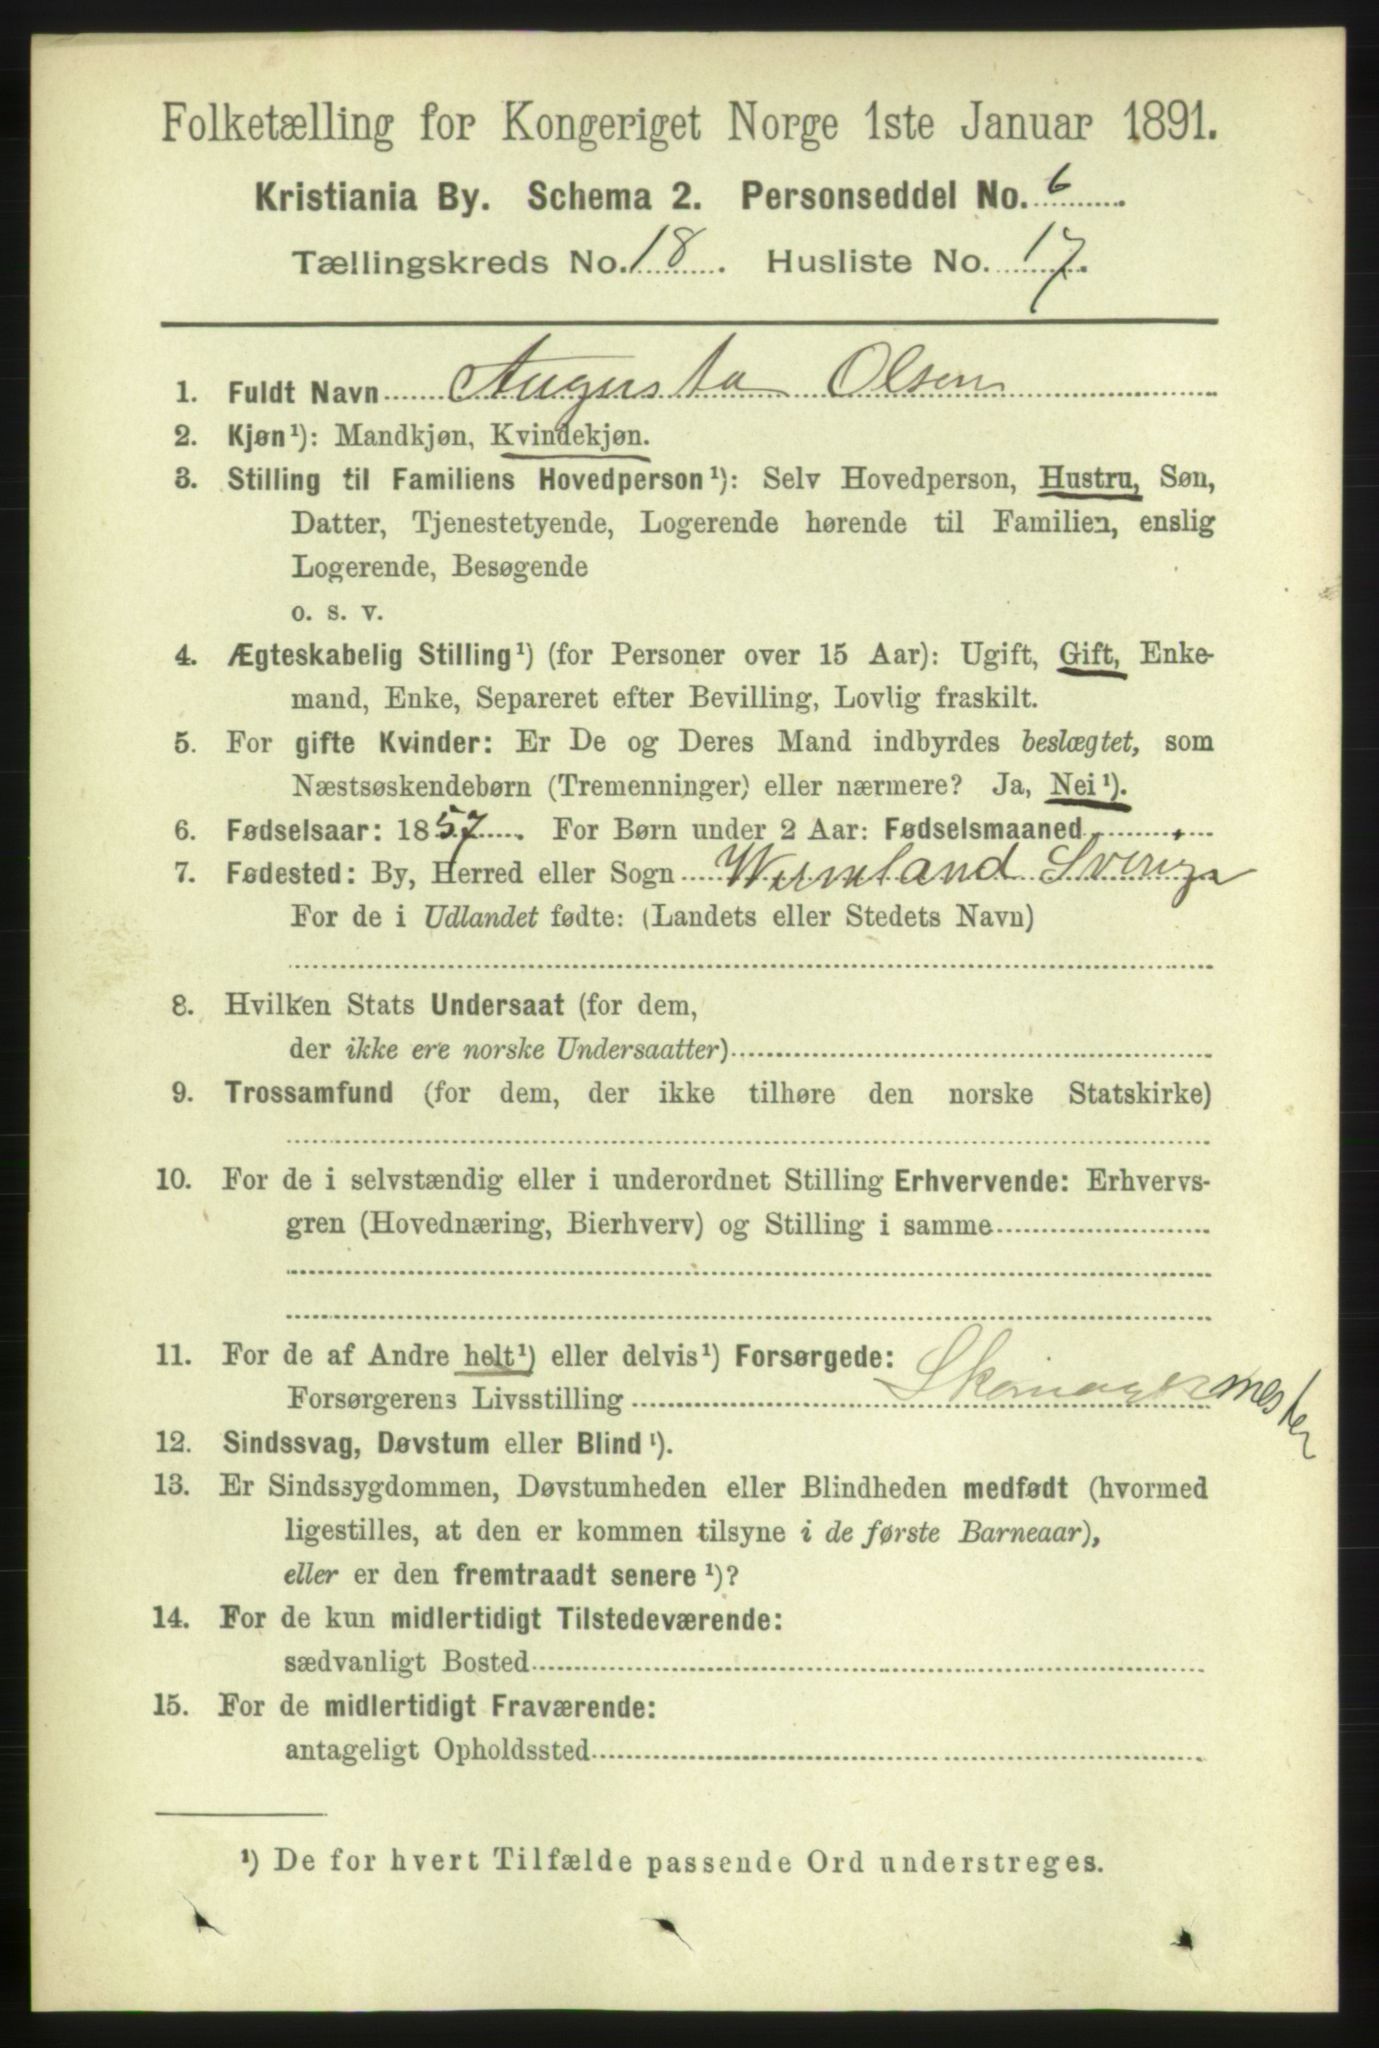 Folketælling for Kongeriget Norge 1ste Januar 1891.
Kristiania By. Schema 2. Personseddel No. 6
Tællingskreds No. 18. Husliste No. 17.
1. Fuldt Navn Augusta Olsen
2. Kjøn¹): Mandkjøn, Kvindekjøn.
3. Stilling til Familiens Hovedperson¹): Selv Hovedperson, Hustru, Søn,
Datter, Tjenestetyende, Logerende hørende til Familien, enslig
Logerende, Besøgende
o. s. v.
4. Ægteskabelig Stilling¹) (for Personer over 15 Aar): Ugift, Gift, Enke-
mand, Enke, Separeret efter Bevilling, Lovlig fraskilt.
5. For gifte Kvinder: Er De og Deres Mand indbyrdes beslægtet, som
Næstsøskendebørn (Tremenninger) eller nærmere? Ja, Nei¹).
6. Fødselsaar: 1857. For Børn under 2 Aar: Fødselsmaaned
7. Fødested: By, Herred eller Sogn Wermland Sverige
For de i Udlandet fødte: (Landets eller Stedets Navn)
8. Hvilken Stats Undersaat (for dem,
der ikke ere norske Undersaatter)
9. Trossamfund (for dem, der ikke tilhøre den norske Statskirke)
10. For de i selvstændig eller i underordnet Stilling Erhvervende: Erhvervs-
gren (Hovednæring, Bierhverv) og Stilling i samme
11. For de af Andre helt¹) eller delvis¹) Forsørgede:
Forsørgerens Livsstilling Skomagermester
12. Sindssvag, Døvstum eller Blind¹).
13. Er Sindssygdommen, Døvstumheden eller Blindheden medfødt (hvormed
ligestilles, at den er kommen tilsyne i de første Barneaar),
eller er den fremtraadt senere¹)?
14. For de kun midlertidigt Tilstedeværende:
sædvanligt Bosted
15. For de midlertidigt Fraværende:
antageligt Opholdssted
¹) De for hvert Tilfælde passende Ord understreges.